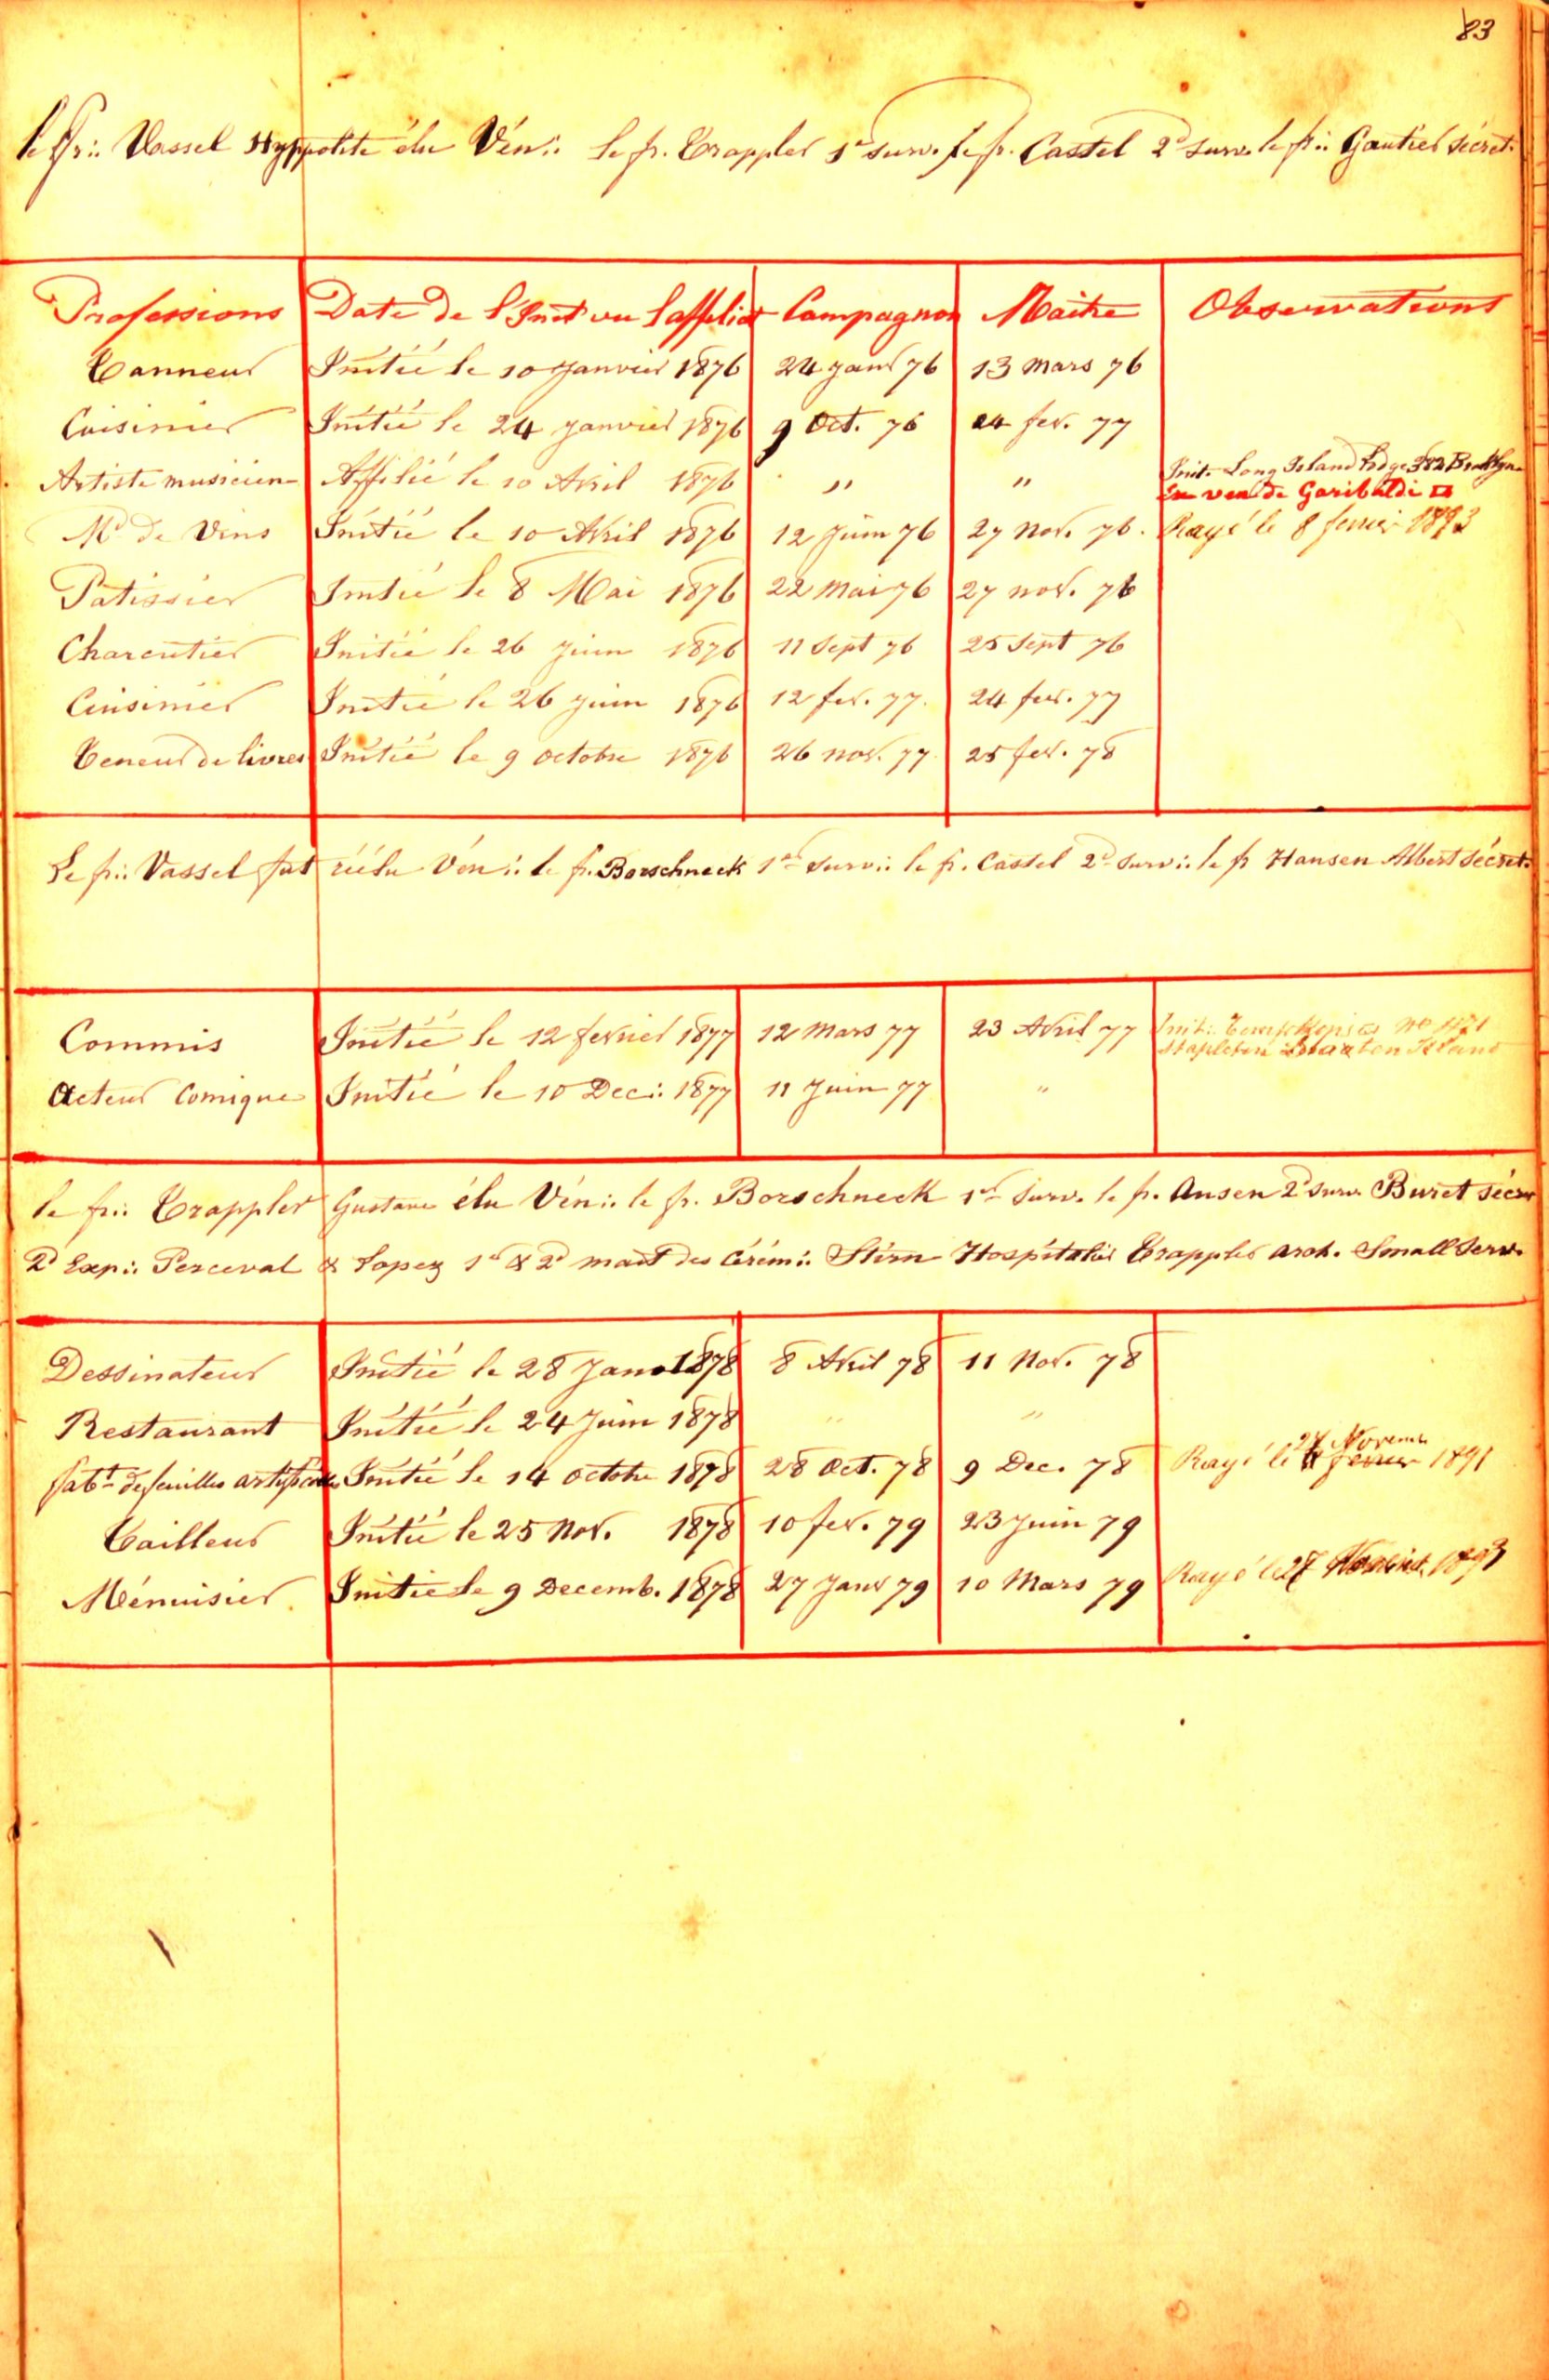 83
le fr∴ Vassel Hyppolite élu Vén∴ le fr. Trappler 1er surv. le fr. Castel 2d surv. le fr∴ Gautier sécret.
Professions Date de l'Init ou l'affiliat Compagnon Maître Observations
Tanneur Initié le 10 Janvier 1876 24 Janv 76 13 Mars 76
Cuisinier Initié le 24 Janvier 1876 9 Oct. 76 24 fev. 77
Artiste musicien Affilié le 10 Avril 1876 " " Init. Long Island Lodge 382 Brooklyn
Ex ven de Garibaldi
Md de Vins Initié le 10 Avril 1876 12 Juin 76 27 Nov. 76. Rayé le 8 fevrier 1893
Patissier Initié le 8 Mai 1876 22 Mai 76 27 nov. 76
Charcutier Initié le 26 Juin 1876 11 Sept 76 25 Sept 76
Cuisinier Initié le 26 Juin 1876 12 fev. 77. 24 fev. 77
Teneur de livres Initié le 9 Octobre 1876 26 nov. 77 25 fev. 78
Le fr∴ Vassel fut réélu Ven∴ le fr. Borschneck 1er Surv∴ le fr. Castel 2d Surv∴ le fr Hansen Albert Sécret.
Commis Initié le 12 fevrier 1877 12 Mars 77 23 Avril 77 Init∴
Stapleton Staaten Island
Acteur Comique Initié le 10 Dec∴ 1877 11 Juin 77 "
le fr∴ Trappler Gustave élu Vén∴ le fr. Borschneck 1er Surv. le fr. Ansen 2d Surv. Buret Sécr
2d Exp∴ Perceval & Lopez 1er & 2d mait des Cérém∴ Stirn Hospitalier Trappler Arch. Small Serv.
Dessinateur Initié le 28 Janv 1878 8 Avril 78 11 Nov. 78
Restaurant Initié le 24 Juin 1878 " "
27 Novemb
fabt de feuilles artificielles Initié le 14 Octobre 1878 28 Oct. 78 9 Dec. 78 Rayé le fevrier 1891
Tailleur Initié le 25 Nov. 1878 10 fev. 79 23 Juin 79
Ménuisier Initié le 9 Decemb. 1878 27 Janv 79 10 Mars 79 Rayé le 27 1893